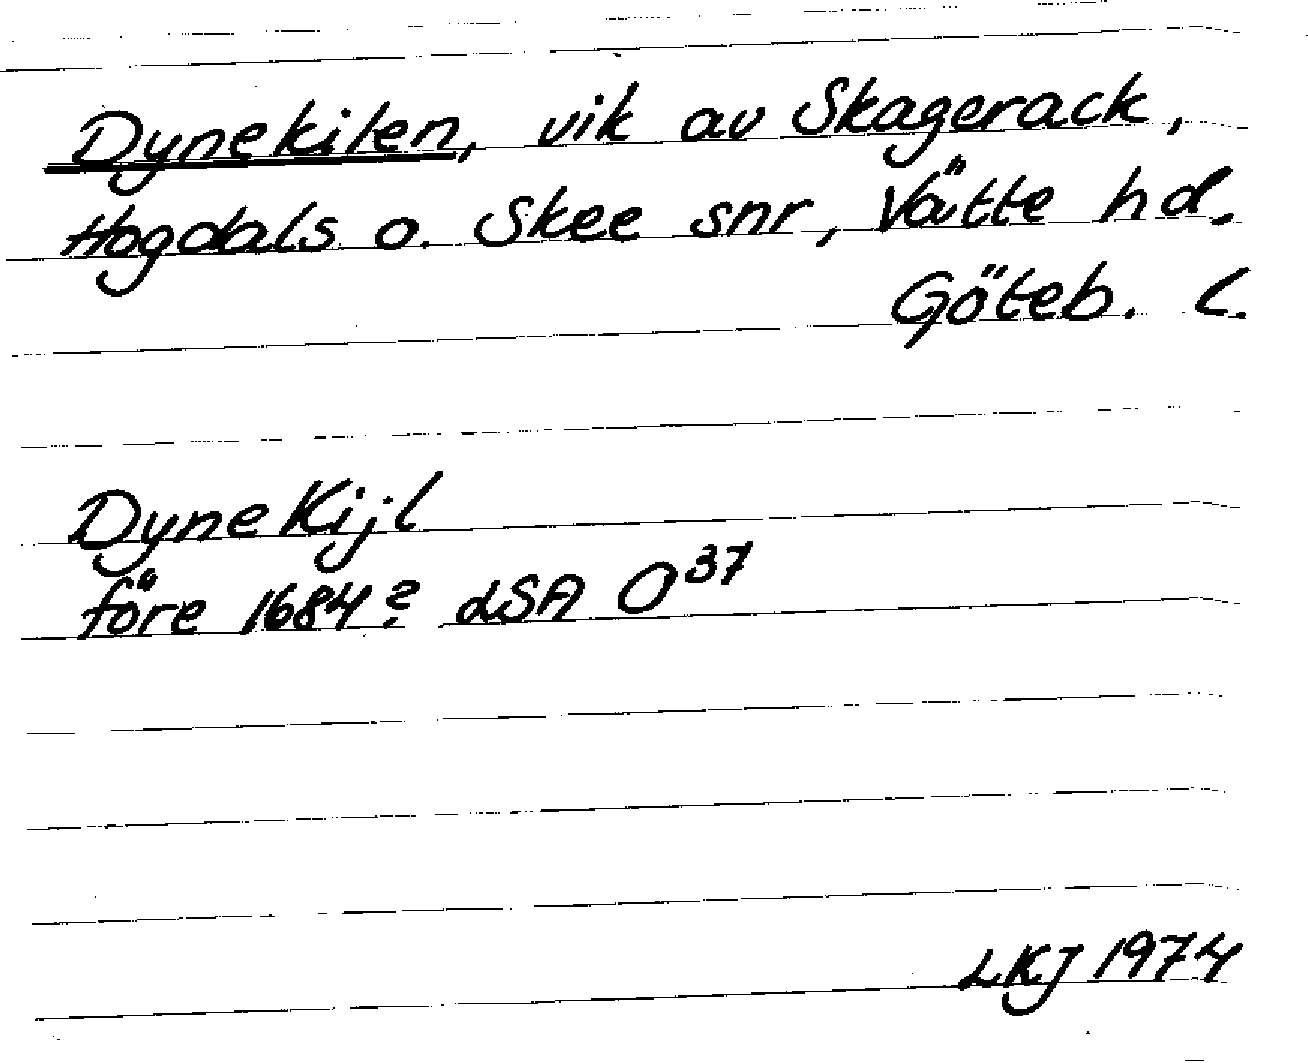 Dynekilen, vik av Skagerack,
Hogdals o. Skee snr, Vätte hd.
Göteb. l.
Dyne Kijl
före 1684? LSA O37
LKJ 1974